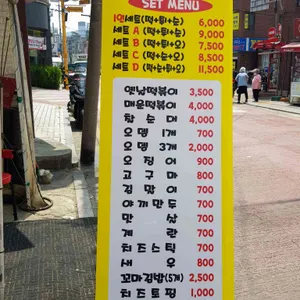 SET MENU
1인세트(떡+튀+순) 6,000
세트 A (떡+튀+순) 9,000
세트 B (떡+튀+오) 7,500
세트 C (떡+순+오) 8,500
세트 D (떡+튀+순+오) 11,500
옛날떡볶이 3,500
매운떡볶이 4,000
찹순대 4,000
오뎅 1개 700
오뎅 3개 2,000
오징어 900
고구마 800
김말이 700
야끼만두 700
맛살 700
계란 700
치즈스틱 700
새우 800
꼬마김밥(5개) 2,500
치즈토핑 1,000